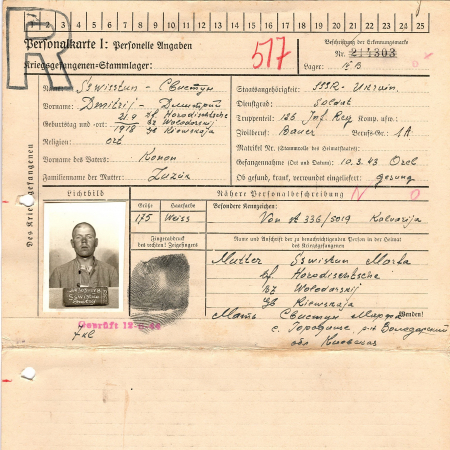 1 2 3 4 5 6 7 8 9 10 11 12 13 14 15 16 17 18 19 20 21 22 23 24 25
R
Personalkarte I: Personelle Angaben
Kriegsgefangenen-Stammlager:
517
Beschriftung der Erkennungsmarke
Nr. 211303
Lager:
Des Kriegsgefangenen
Name: Sswisstun - Свистун
Vorname: Dmitrij - Дмитрий
Geburtstag und -ort: 21.9 1918 df Horodischtsche bz Wolodarsij gb Kiewskaja
Religion: ort
Vorname des Vaters: Konon
Familienname der Mutter:
Staatsangehörigkeit: SSSR - Ukrain.
Dienstgrad: Soldat
Truppenteil: 126 Inf. Reg Komp. usw.:
Zivilberuf: Bauer Berufs-Gr.: 1A
Matrikel Nr. (Stammrolle des Heimatstaates):
Gefangennahme (Ort und Datum): 10.3.43 Orel
Ob gesund, krank, verwundet eingeliefert:
Lichtbild
Nähere Personalbeschreibung
N O
Größe
Haarfarbe
Besondere Kennzeichen:
175
Weiss
Von 336/5019 Kalvarija
Fingerabdruck
des rechten Zeigefingers
Name und Anschrift der zu benachrichtigenden Person in der Heimat
des Kriegsgefangenen
Mutter Sswistun Marka
df Horodisentsche
bz Wolodarskij
gb Kiewskaja
Wenden!
Мать Свистун Марфа
с. Городище, р-н Володарский
обл Киевская
Geprüft